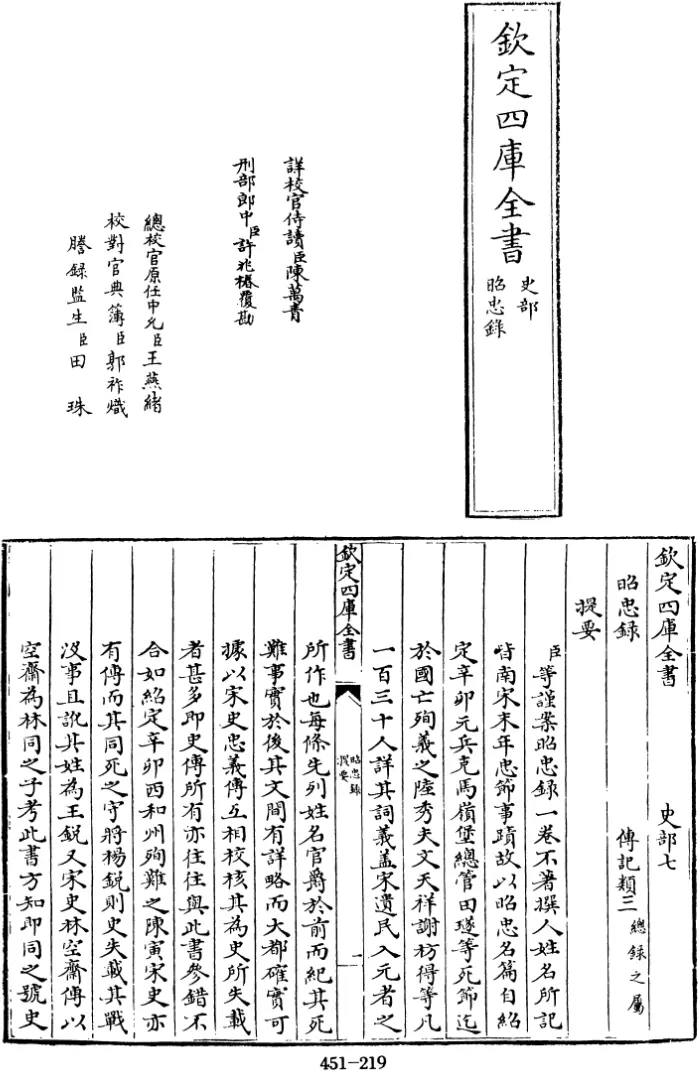 欽定四庫全書
史部
昭忠錄
詳校官侍讀臣陳萬青
刑部郎中臣許兆椿覆勘
總校官原任中允臣王燕緒
校對官典簿臣郭祚熾
謄錄監生臣田珠
欽定四庫全書 史部七
昭忠録 傳記類三總錄之屬
提要
臣等謹案昭忠録一卷不著撰人姓名所記
皆南宋末年忠節事蹟故以昭忠名篇自紹
定辛卯元兵克馬嶺堡總管田璲等死節迄
於國亡殉義之陸秀夫文天祥謝枋得等凡
一百三十人詳其詞義蓋宋遺民入元者之
欽定四庫全書
昭忠錄
提要
一
所作也每條先列姓名官爵於前而紀其死
難事實於後其文間有詳略而大都確實可
據以宋史忠義傳互相校核其為史所失載
者甚多即史傳所有亦往往與此書參錯不
合如紹定辛卯西和州殉難之陳寅宋史亦
有傳而其同死之守將楊銳則史失載其戰
沒事且訛其姓為王銳又宋史林空齋傳以
空齋為林同之子考此書方知即同之號史
451-219